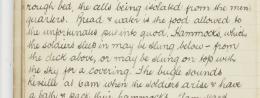 rough bed, the cells being isolated from the men
quarters. Bread & water is the food allowed to
the unfortunates put into quod. Hammocks, which
the soldiers sleep in may be slung below - from
the deck above, or may be slung on top with
the sky for a covering. The bugle sounds
Reveille at 6am when the soldiers arise & have
a bath & pack their hammocks.